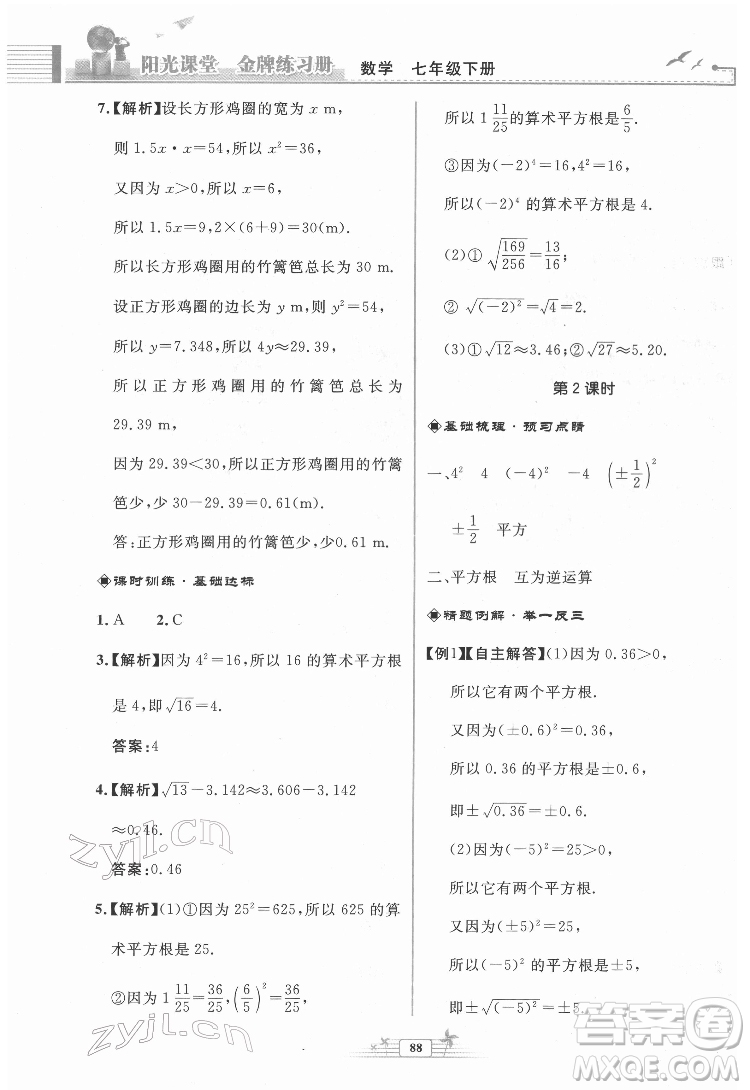 阳光课堂 金牌练习册 数学 七年级下册
7.【解析】设长方形鸡圈的宽为 x m,
则 1.5x·x=54,所以 x²=36,
又因为 x>0,所以 x=6,
所以 1.5x=9,2×(6+9)=30(m).
所以长方形鸡圈用的竹篱笆总长为 30 m.
设正方形鸡圈的边长为 y m,则 y²=54,
所以 y=7.348,所以 4y≈29.39(m),
所以正方形鸡圈用的竹篱笆总长为
29.39 m,
因为 29.39<30,所以正方形鸡圈用的竹篱
笆少,少 30-29.39=0.61(m).
答:正方形鸡圈用的竹篱笆少,少0.61 m.
课时训练·基础达标
1. A 2. C
3.【解析】因为 4²=16,所以 16 的算术平方根
是 4,即√16=4.
答案:4
4.【解析】√13-3.142≈3.606-3.142
≈0.46.
答案:0.46
5.【解析】(1)①因为 25²=625,所以 625 的算
术平方根是 25.
②因为 1 11/25=36/25,(6/5)²=36/25,
所以 1 11/25的算术平方根是6/5.
③因为(-2)⁴=16,4²=16,
所以(-2)⁴ 的算术平方根是 4.
(2)① √(169/256)=13/16;
② √(-2)²=√4=2.
(3)①√12≈3.46;②√27≈5.20.
第 2 课时
基础梳理·预习点睛
一、4² 4 (-4)² -4 (±1/2)²
±1/2 平方
二、平方根 互为逆运算
精题例解·举一反三
【例1】【自主解答】(1)因为 0.36>0,
所以它有两个平方根.
又因为(±0.6)²=0.36,
所以 0.36 的平方根是±0.6,
即±√0.36=±0.6.
(2)因为(-5)²=25>0,
所以它有两个平方根.
又因为(±5)²=25,
所以(-5)² 的平方根是±5,
即±√(-5)²=±5.
88
zyjl.cn
zyjl.cn
答案圈
MXQE.COM